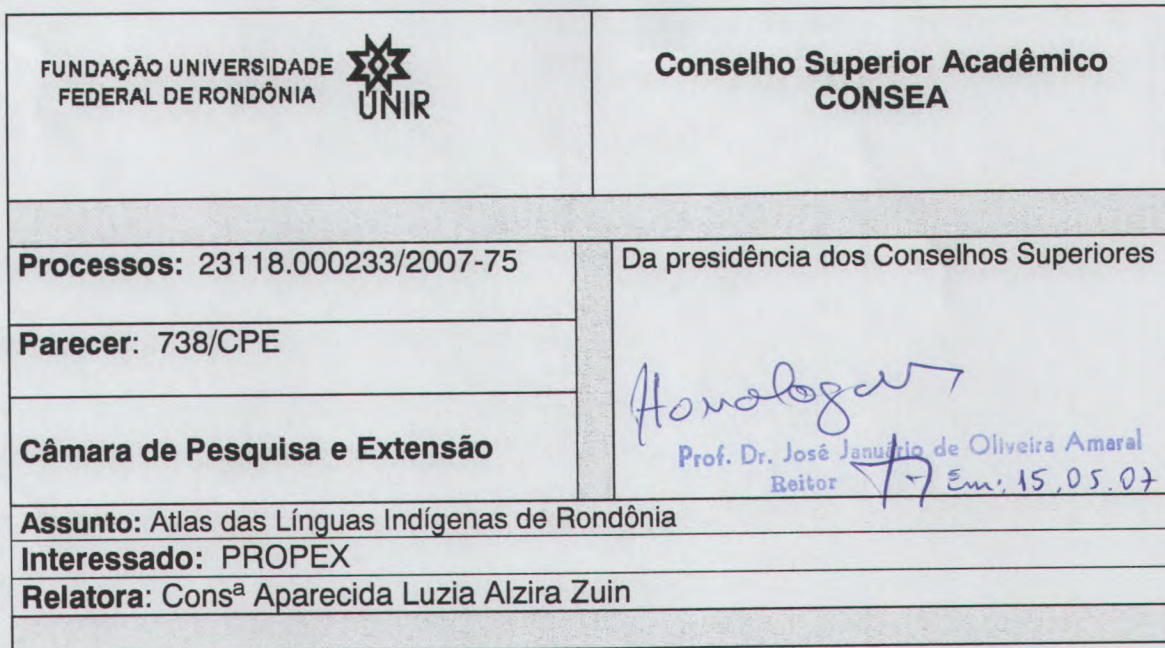 FUNDAÇÃO UNIVERSIDADE
FEDERAL DE RONDÔNIA
UNIR
Conselho Superior Acadêmico
CONSEA
Processos: 23118.000233/2007-75
Parecer: 738/CPE
Câmara de Pesquisa e Extensão
Da presidência dos Conselhos Superiores
Homologar
Prof. Dr. José Januário de Oliveira Amaral
Reitor
Em: 15.05.07
Assunto: Atlas das Línguas Indígenas de Rondônia
Interessado: PROPEX
Relatora: Consª Aparecida Luzia Alzira Zuin